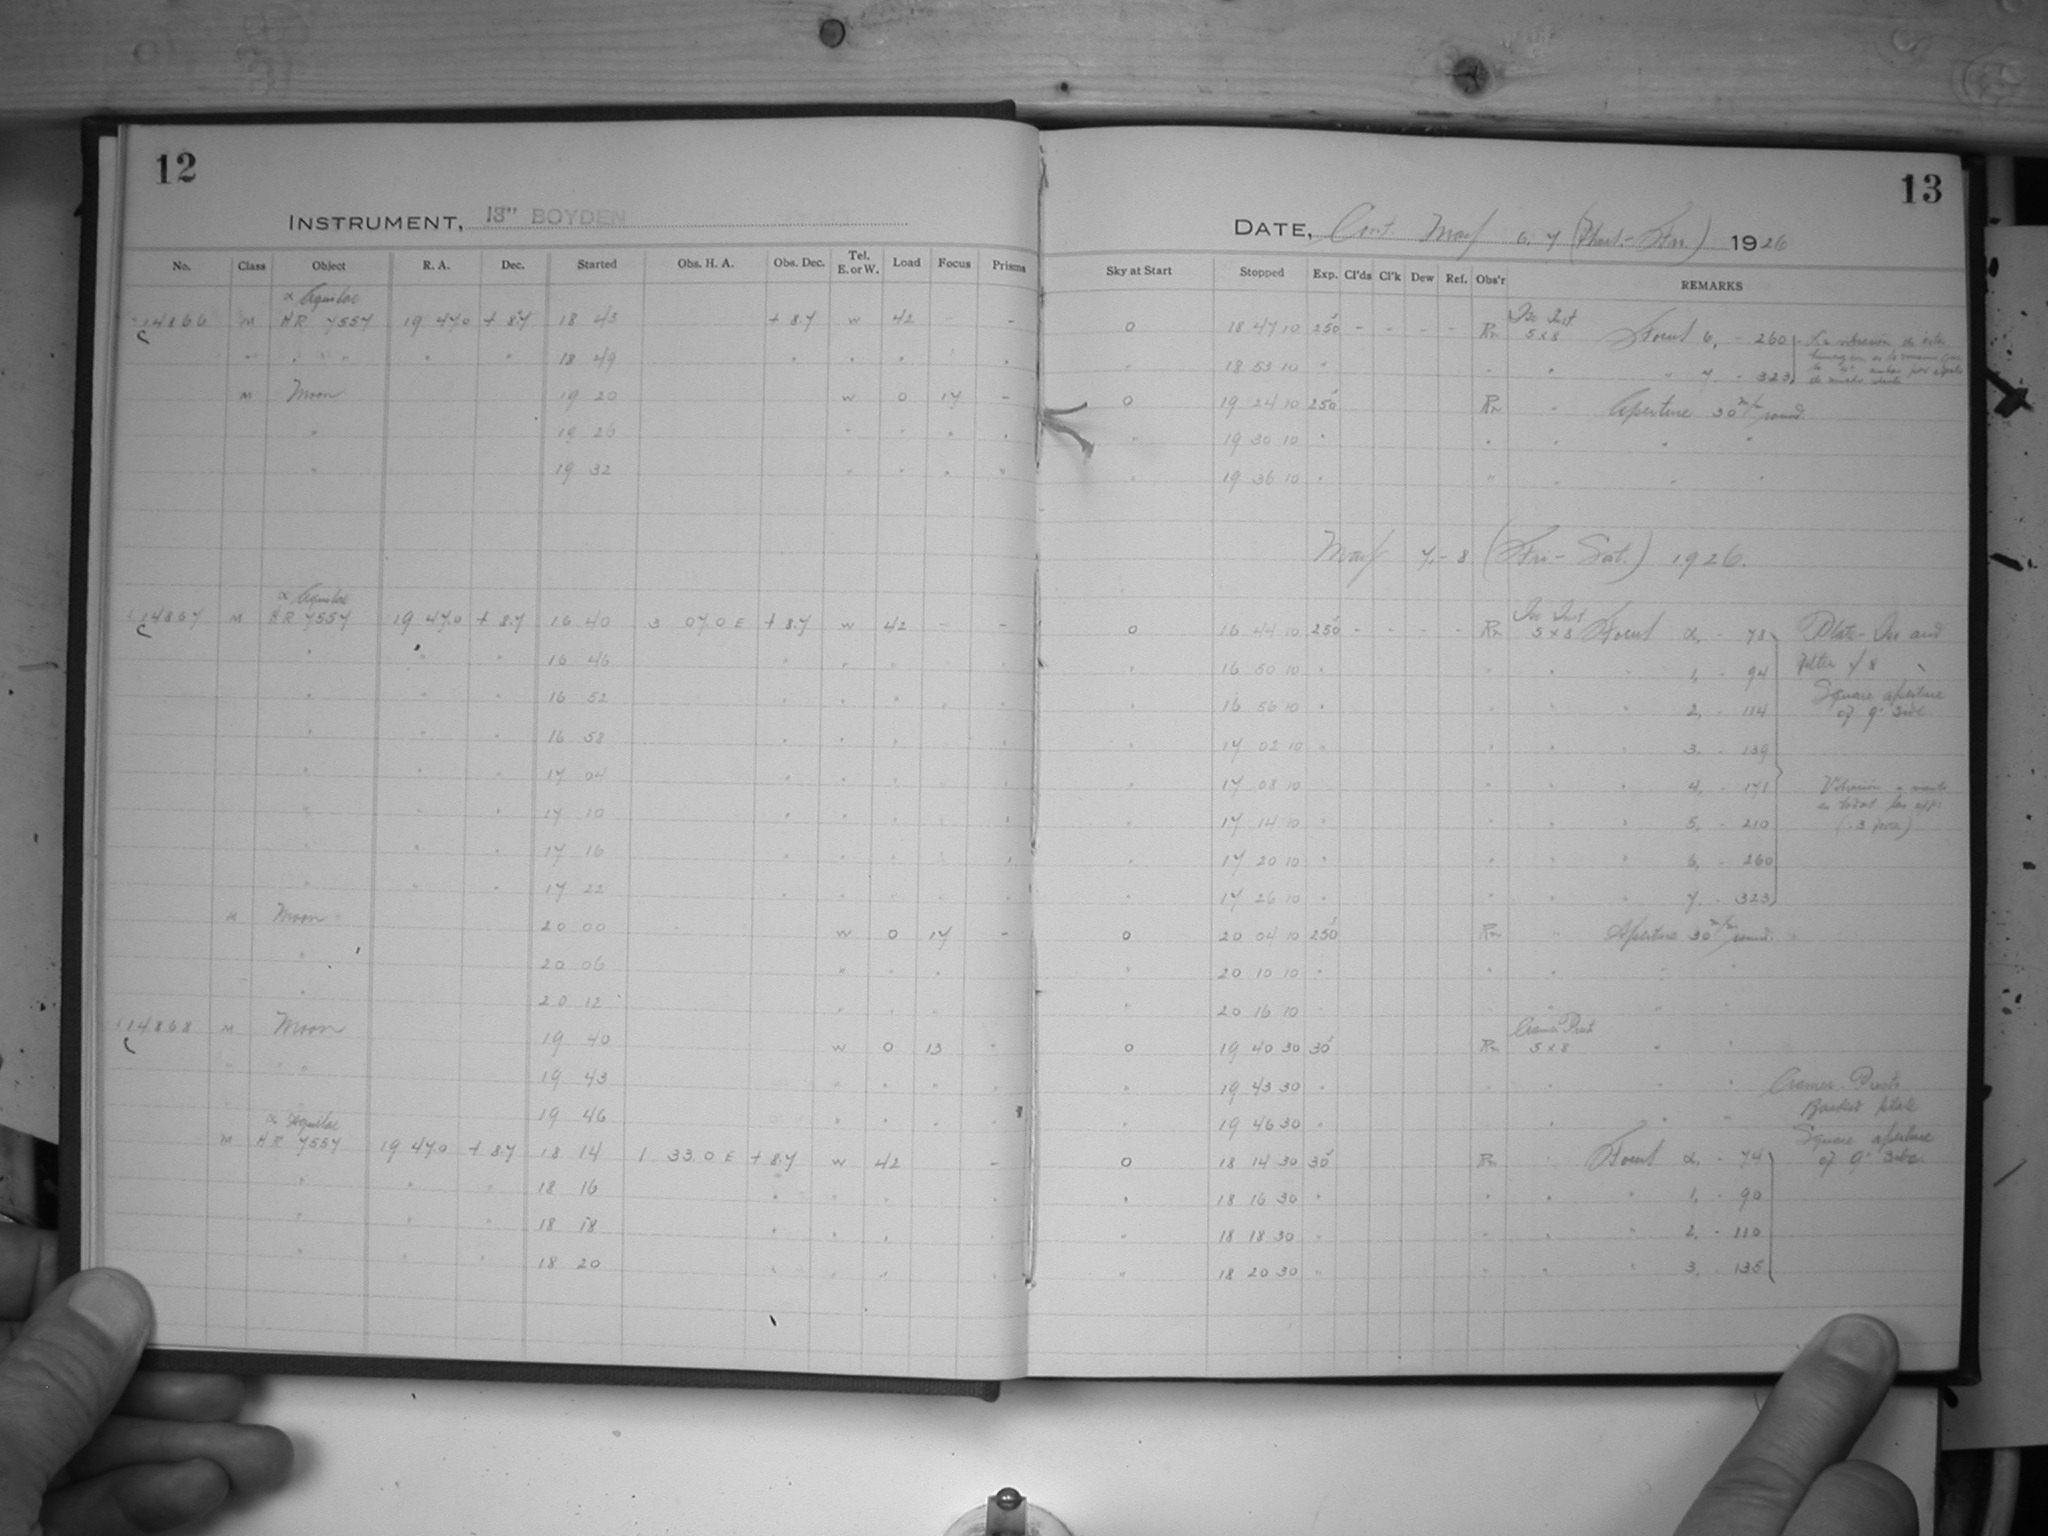 12
INSTRUMENT, 13" BOYDEN
No. Class Object R. A. Dec. Started Obs. H. A. Obs. Dec. Tel. E. or W. Load Focus Prisms
α Aquilae
14866 M HR 7557 19 47.0 + 8.7 18 43 + 8.7 W 42 - -
" " " 18 49 " " "
M Moon 19 20 W 0 17 -
" 19 26 " " " "
" 19 32 " " " "
α Aquilae
14867 M HR 7557 19 47.0 + 8.7 16 40 3 07.0 E + 8.7 W 42 - -
" " " 16 46 " " "
" " " 16 52 " " "
" " " 16 58 " " "
" " " 17 04 " " "
" " " 17 10 " " "
" " " 17 16 " " "
" " " 17 22 " " "
M Moon 20 00 W 0 17 -
" 20 06 " " "
" 20 12 " " "
14868 M Moon 19 40 W 0 13 -
" " " 19 43 " " " "
19 46 " " " "
α Aquilae
M HR 7557 19 47.0 + 8.7 18 14 1 33.0 E + 8.7 W 42 -
" " " 18 16 " " " "
" " " 18 18 " " "
" " " 18 20 " " " "
13
DATE, Cont. May 6, 7 (Thurs.-Fri.) 1926
Sky at Start Stopped Exp. Cl'ds Cl'k Dew Ref. Obs'r REMARKS
Iso Inst.
0 18 47 10 250 - - - - Rn 5x8 Focus 6, - 260
" 18 53 10 " " " " 7. - 323
0 19 24 10 250 Rn " Aperture 30 m/m round.
" 19 30 10 " " " " "
" 19 36 10 " " " "
May 7-8 (Fri-Sat.) 1926.
Iso Inst
0 16 44 10 250 - - - - Rn 5x8 Focus α, - 78 Plate-Iso and
" 16 50 10 " " " " 1, - 94 Filter
" 16 56 10 " " " " 2, - 114 Square aperture
of 9" side.
" 17 02 10 " " " " 3. - 139
" 17 08 10 " " " " 4, - 171
" 17 14 10 " " " " 5, - 210
" 17 20 10 " " " " 6, - 260
" 17 26 10 " " " " 7. - 323
0 20 04 10 250 Rn " Aperture 30 m/m round.
" 20 10 10 " " " " "
" 20 16 10 " " " "
Cramer Prest
0 19 40 30 30 Rn 5x8 " "
" 19 43 30 " " " " "
Cramer-Presto
Backed plate
" 19 46 30 " " " " "
Square aperture
of 9" side.
0 18 14 30 30 Rn " Focus α, - 74
" 18 16 30 " " " " 1, - 90
" 18 18 30 " " " " 2, - 110
" 18 20 30 " " " " 3, - 135